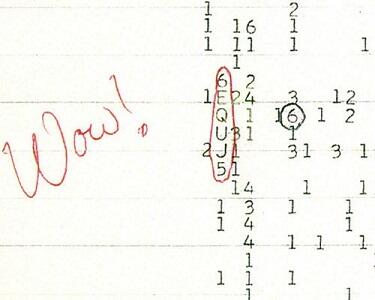 1 2
1 16 1
1 11 1 1
1
6 2
1 E 24 3 12
Q 1 16 1 2
U 31 1
2 J 1 31 3 1
5 1
14 1 1
1 3 1 1
1 4 1
4 1 1 1
1 1
1 1 1
1 1
Wow!